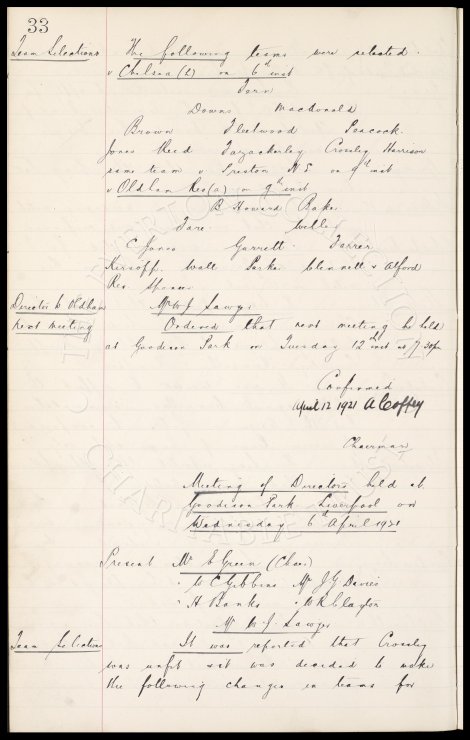 33
Team Selections
The following teams were selected.
v Chelsea (L) on 6th inst
Fern
Downs Macdonald
Brown Fleetwood Peacock.
Jones Reid Fazackerley Crossley Harrison
same team v. Preston N E on 9th inst
v Oldham Res (a) on 9th inst
B. Howard Baker
Tare
C Jones Garrett
Kerioff Wall Parker Clennell & Alford
Res Spencer
Director to Oldham
Mr W J Sawyer
next meeting
Ordered that next meeting be held
at Goodison Park on Tuesday 12th inst at 7.30pm
Confirmed
April 12 1921 A Coffey
Chairman
Meeting of Directors held at
Goodison Park Liverpool on
Wednesday 6th April 1921
Present Mr E Green (Chair)
" W C Gibbins Mr J G Davies
" H Banks " W R Clayton
Mr W J Sawyer
Team Selection
It was reported that Crossley
was unfit & it was decided to make
the following changes in teams for